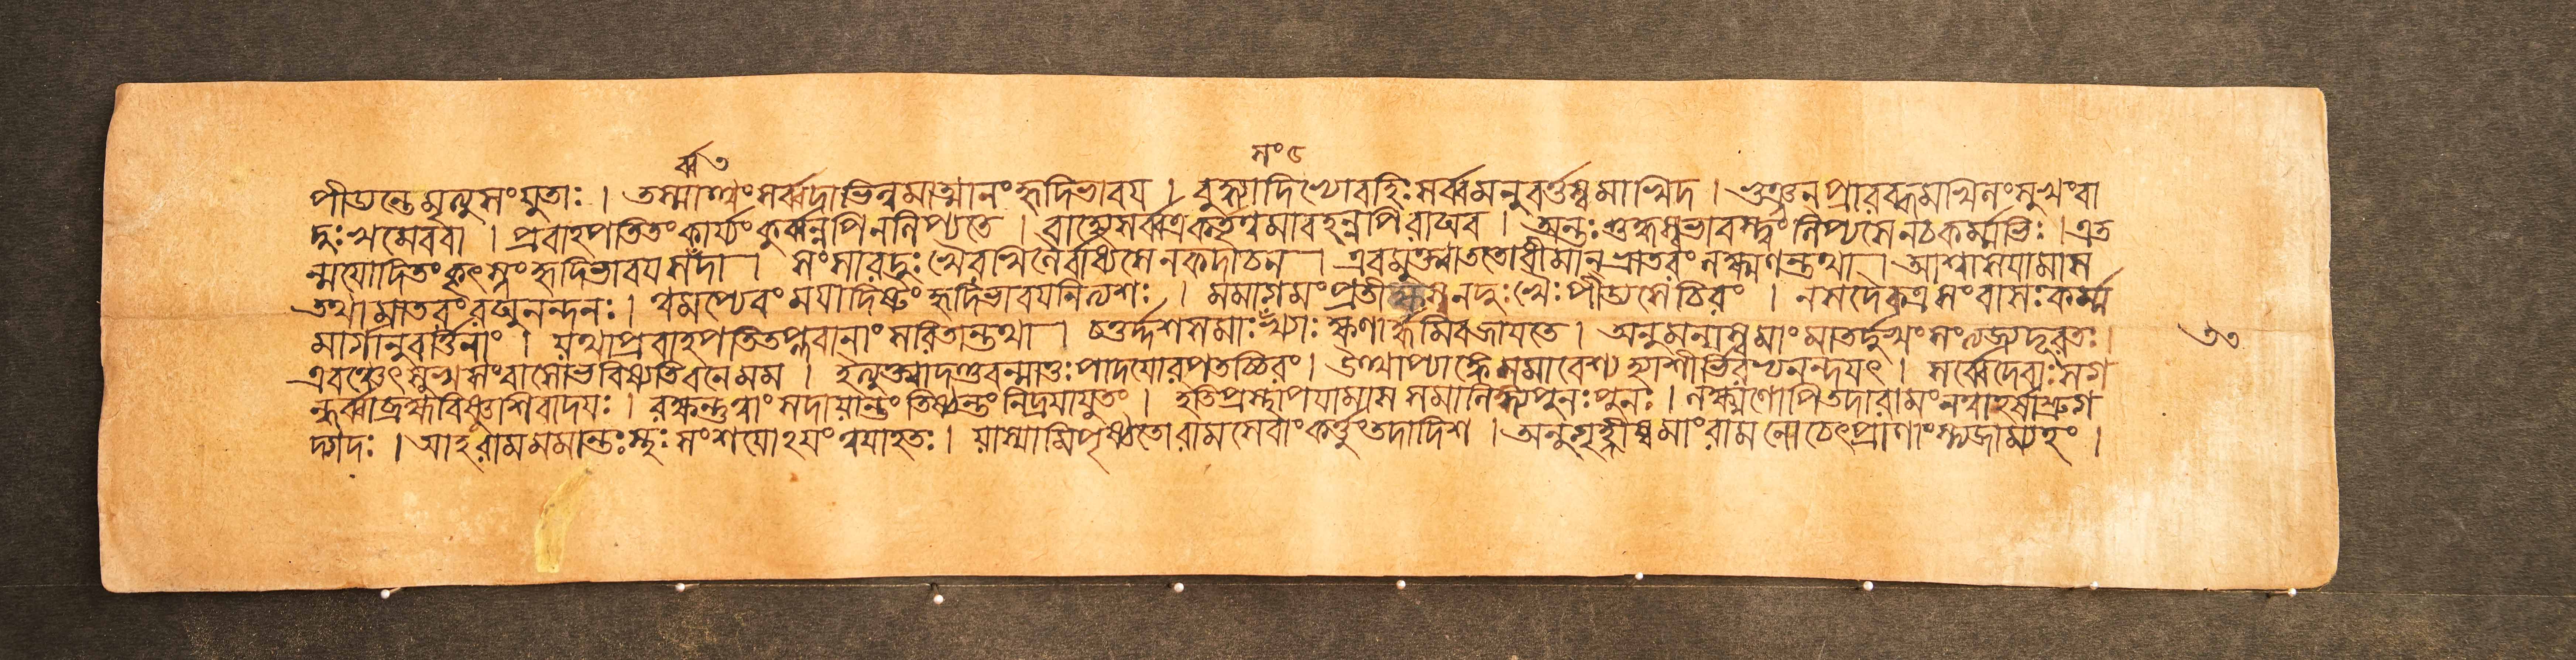 র্ব্ব ৩
সং ৫
পীড্যন্তে মৃত্যুসংযুতাঃ । তস্মাত্ত্বং সর্ব্বদা ভিন্নমাত্মানং হৃদি ভাবয । বুদ্ধ্যাদিভ্যো বহিঃ সর্ব্বমনুবর্ত্তস্ব মা খিদ । ভুঞ্জন্প্রারব্ধমখিলং সুখং বা
দুঃখমেব বা । প্রবাহপতিতং কার্য্যং কুর্ব্বন্নপি ন লিপ্যতে । বাহ্যে সর্ব্বত্র কর্তৃত্বমাবহন্নপি রাঘব । অন্তঃশুদ্ধস্বভাবস্ত্বং লিপ্যসে ন চ কর্ম্মভিঃ । এত
ন্মযোদিতং কৃৎস্নং হৃদি ভাবয সদা । সংসারদুঃখৈরখিলৈর্বাধ্যসে ন কদাচন । এবমুক্ত্বা ততো ধীমান্ ভ্রাতরং লক্ষ্মণন্তথা । আশ্বাসযামাস
তথা মাতরং রঘুনন্দনঃ । ত্বমপ্যেবং মযাদিষ্টং হৃদি ভাবয নিত্যশঃ । সমাগমং প্রতীক্ষস্ব ন দুঃখৈঃ পীড্যসে চিরং । ন সদৈকত্র সংবাসঃ কর্ম্ম
মার্গানুবর্ত্তিনাং । যথা প্রবাহপতিতপ্লবানাং সরিতান্তথা । চতুর্দ্দশসমাঃ ক্ষণার্দ্ধমিব জাযতে । অনুমন্যস্ব মাং মাতর্দুঃখং সংত্যজ্য দূরতঃ । ৩৩
এবঞ্চেৎ সুখসংবাসো ভবিষ্যতি বনে মম । ইত্যুক্ত্বা দণ্ডবন্মাতুঃ পাদযোরপতচ্চিরং । উত্থাপ্যাঙ্কে সমাবেশ্য হ্যাশীর্ভিরভ্যনন্দযৎ । সর্ব্বে দেবাঃ সগ
ন্ধর্ব্বা ব্রহ্মবিষ্ণুশিবাদযঃ । রক্ষন্তু ত্বাং সদা যান্তং তিষ্ঠন্তং নিদ্রযা যুতং । ইতি প্রস্থাপযামাস সমালিঙ্গ্য পুনঃ পুনঃ । লক্ষ্মণোপি তদা রামং নত্বা হর্ষাশ্রুগ
দ্গদঃ । আহ রাম মমান্তঃস্থঃ সংশযোঽযং ত্বযা হৃতঃ । যাস্যামি পৃষ্ঠতো রাম সেবাং কর্ত্তুং তদাদিশ । অনুগৃহ্ণীষ্ব মাং রাম নো চেৎ প্রাণাংস্ত্যজাম্যহং ।